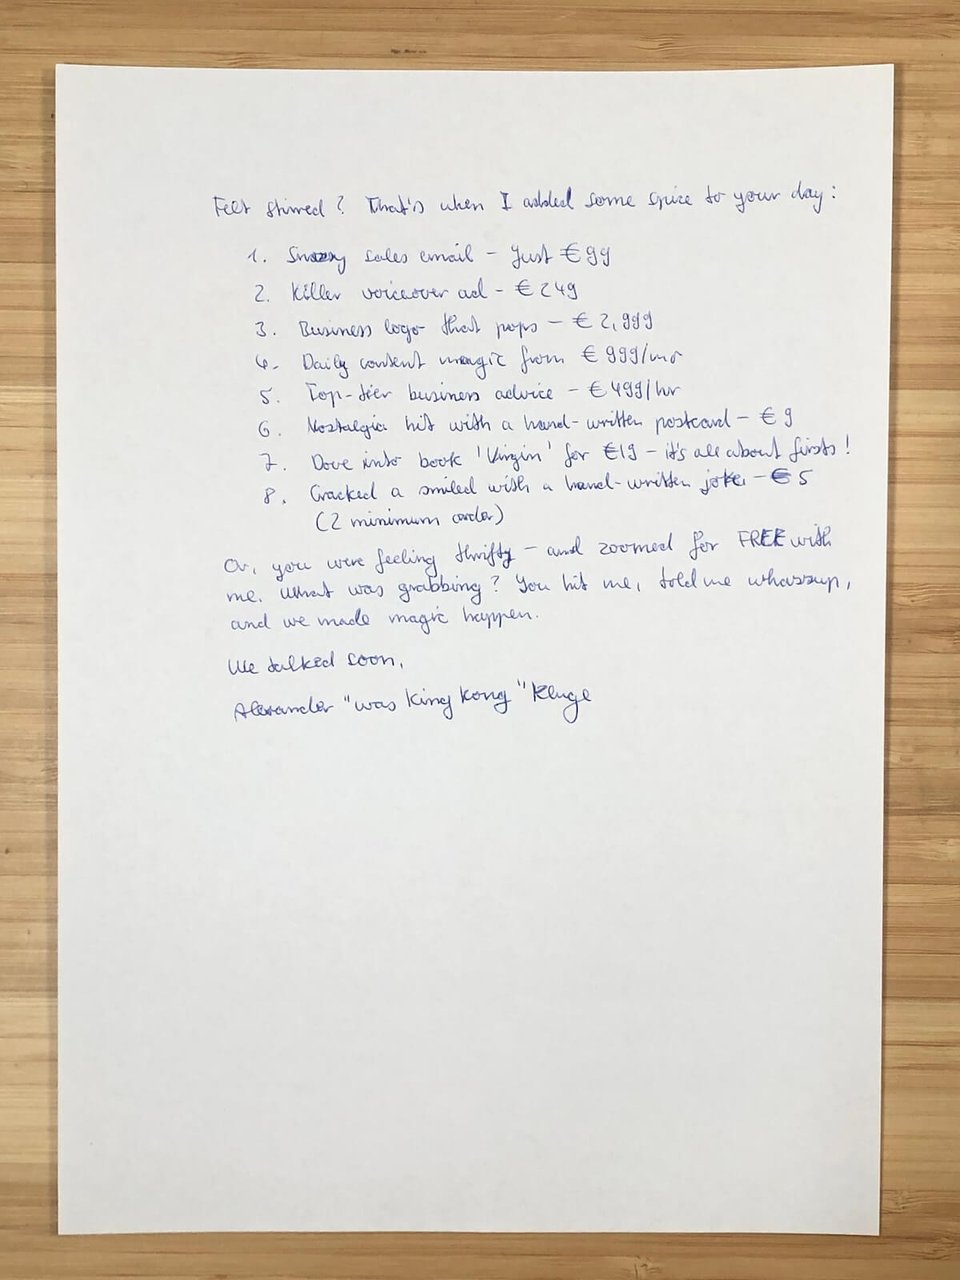 Felt stirred? That's when I added some spice to your day:
1. Snazzy sales email - Just €99
2. Killer voiceover ad - €249
3. Business logo that pops - €2,999
4. Daily content magic from €999/mo
5. Top-tier business advice - €499/hr
6. Nostalgia hit with a hand-written postcard - €9
7. Dove into book 'Virgin' for €19 - it's all about firsts!
8. Cracked a smiled with a hand-written joke - €5
(2 minimum order)
Or, you were feeling thrifty - and zoomed for FREE with
me. What was grabbing? You hit me, told me whassup,
and we made magic happen.
We talked soon,
Alexander "was King Kong" Kluge